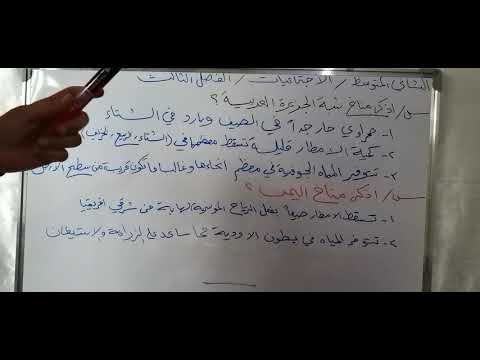 الثاني المتوسط / الاجتماعيات / الفصل الثالث
س/ اذكر مناخ شبة الجزيرة العربية ؟
١- صحراوي حار جداً في الصيف وبارد في الشتاء
٢- كمية الامطار قليلة تسقط معظمها في (الشتاء، ربيع،
٣- تتوفير المياه الجوفية في معظم انحاءها وغالبا ما تكون قريبة من سطح الارض
س/ اذكر مناخ اليمن ؟
١- تسقط الامطار صيفاً بفعل الرياح الموسمية الهابة من شرقي افريقيا
٢- تتوفر المياه في بطون الاودية مما ساعد على الزراعة والاستيطان